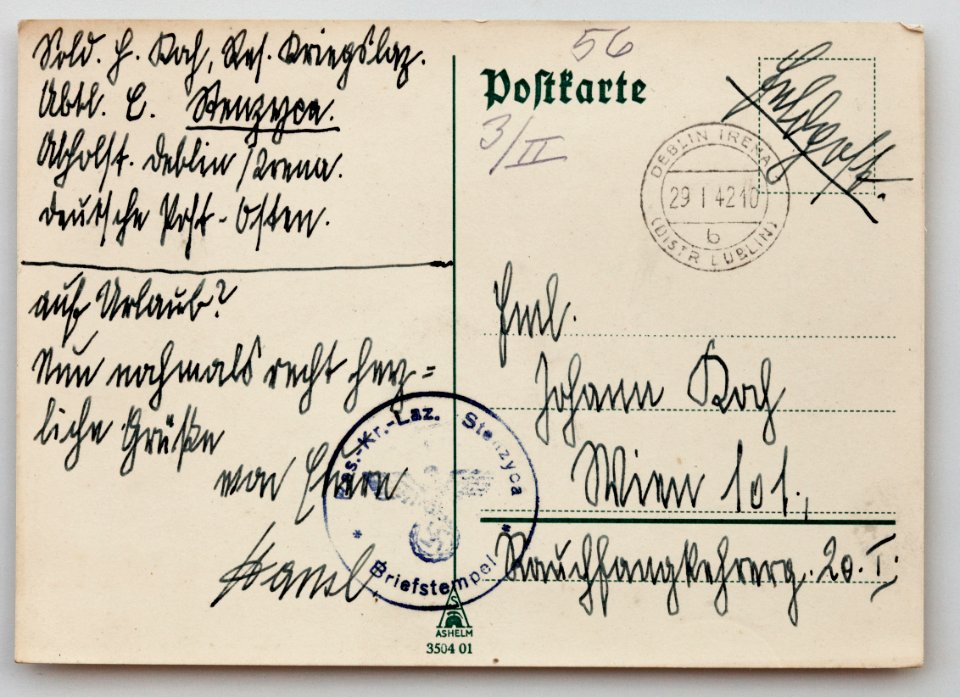 Sold. H. Koch, Res. Kriegslaz.
Abtl. C. Stenzyca.
Abholst. Deblin / Irena.
Deutsche Post - Osten.
auf Urlaub?
Nun nochmals recht herz=
liche Grüße
von Ihrem
Hansl.
56
Postkarte
3/II
Feldpost.
DEBLIN IRENA
29 1 42 10
b
(DISTR LUBLIN)
Johann Koch
Wien 101.,
Rauchfangkehrerg. 20. I.
Res.-Kr.-Laz. Stenzyca
* Briefstempel *
S
ASHELM
3504 01